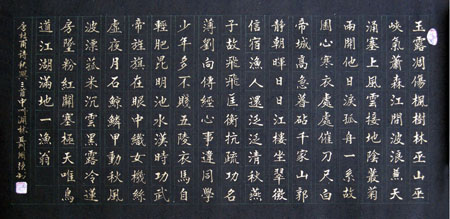 玉露凋傷楓樹林巫山巫
峽氣蕭森江間波浪兼天
涌塞上風雲接地陰叢菊
兩開他日淚孤舟一系故
園心寒衣處處催刀尺白
帝城高急暮砧千家山郭
靜朝暉日日江樓坐翠微
信宿漁人還泛泛清秋燕
子故飛飛匡衡抗疏功名
薄劉向傳經心事違同學
少年多不賤五陵衣馬自
輕肥昆明池水漢時功武
帝旌旗在眼中織女機絲
虛夜月石鯨鱗甲動秋風
波漂菰米沉雲黑露冷蓮
房墜粉紅關塞極天唯鳥
道江湖滿地一漁翁
唐杜甫詩秋興三首